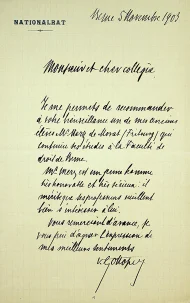 NATIONALRAT
Berne 5 Novembre 1903
Monsieur et cher collègue
Je me permets de recommander
à votre bienveillance un de mes anciens
élèves Mr. Merz de Morat (Fribourg) qui
continue ses études à la Faculté de
droit de Berne.
Mr. Merz est un jeune homme
très honorable et très sérieux. il
mérite que ses professeurs veuillent
bien s'intéresser à lui.
Vous remerciant d'avance, je
vous prie d'agréer l'expression de
mes meilleurs sentiments